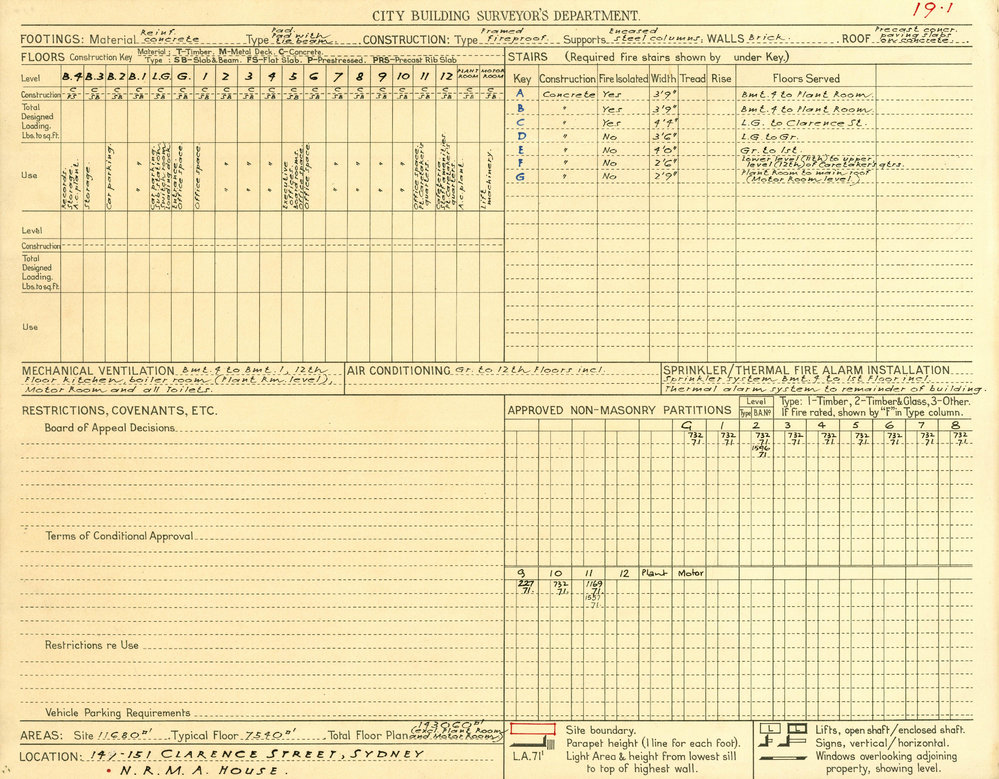 19.1
CITY BUILDING SURVEYOR'S DEPARTMENT.
FOOTINGS: Material Reinf. concrete Type Pad. Pad with tie beam CONSTRUCTION: Type Framed Fireproof. Supports Encased steel columns, WALLS Brick. ROOF Precast concr. paving slabs on concrete.
FLOORS Construction Key Material; T-Timber, M-Metal Deck, C-Concrete.
Type: SB-Slab & Beam. FS-Flat Slab. P-Prestressed. PRS-Precast Rib Slab
Level B.4 B.3 B.2 B.1 L.G. G. 1 2 3 4 5 6 7 8 9 10 11 12 PLANT ROOM MOTOR ROOM
Construction C FS C SB C SB C SB C SB C SB C SB C SB C SB C SB C SB C SB C SB C SB C SB C SB C SB C SB C SB C SB
Total
Designed
Loading.
Lbs. to sq. ft.
Use
Records. Storage. A.c. plant.
Storage.
Car parking.
"
Car parking. Sub station. Switch room. Loading dock.
Entrance. Office space.
Office space.
"
"
"
Executive offices. Board rooms. Office space.
Office space.
"
"
"
"
Office space. Pt. Caretaker's quarters.
Cafeteria. Staff amenities. Pt. Caretaker's quarters.
A.c. plant.
Lift machinery.
Level
Construction
Total
Designed
Loading.
Lbs. to sq. ft.
Use
STAIRS (Required fire stairs shown by under Key.)
Key Construction Fire Isolated Width Tread Rise Floors Served
A Concrete Yes 3'9" Bmt. 4 to Plant Room.
B " Yes 3'9" Bmt. 4 to Plant Room.
C " Yes 4'4" L.G. to Clarence St.
D " No 3'6" L.G. to Gr.
E " No 4'0" Gr. to 1st.
F " No 2'6" Lower level (11th) to upper level (12th) of Caretaker's qtrs.
G " No 2'9" Plant Room to main roof (Motor Room level)
MECHANICAL VENTILATION Bmt. 4 to Bmt. 1, 12th
Floor Kitchen, boiler room (Plant Rm. level),
Motor Room and all Toilets.
AIR CONDITIONING Gr. to 12th Floors incl.
SPRINKLER/THERMAL FIRE ALARM INSTALLATION
Sprinkler system Bmt. 4 to 1st Floor incl.
Thermal alarm system to remainder of building.
RESTRICTIONS, COVENANTS, ETC.
Board of Appeal Decisions.
Terms of Conditional Approval
Restrictions re Use
Vehicle Parking Requirements
APPROVED NON-MASONRY PARTITIONS
Level
Type B.A. Nº
Type: 1-Timber, 2-Timber & Glass, 3-Other.
If fire rated, shown by "F" in Type column.
G 1 2 3 4 5 6 7 8
732 732 732 732 732 732 732 732 732
71. 71. 71. 71. 71. 71. 71. 71. 71.
1596
71.
9 10 11 12 Plant Motor
227 732 1169
71. 71. 71.
1557
71.
AREAS: Site 11680 □' Typical Floor 7540 □' Total Floor Plan 143060 □' (excl. Plant Room and Motor Room)
LOCATION: 147-151 CLARENCE STREET, SYDNEY
N.R.M.A. HOUSE.
Site boundary.
Parapet height (1 line for each foot).
L.A. 71' Light Area & height from lowest sill
to top of highest wall.
L L
Lifts, open shaft/enclosed shaft.
Signs, vertical/horizontal.
Windows overlooking adjoining
property, showing level.